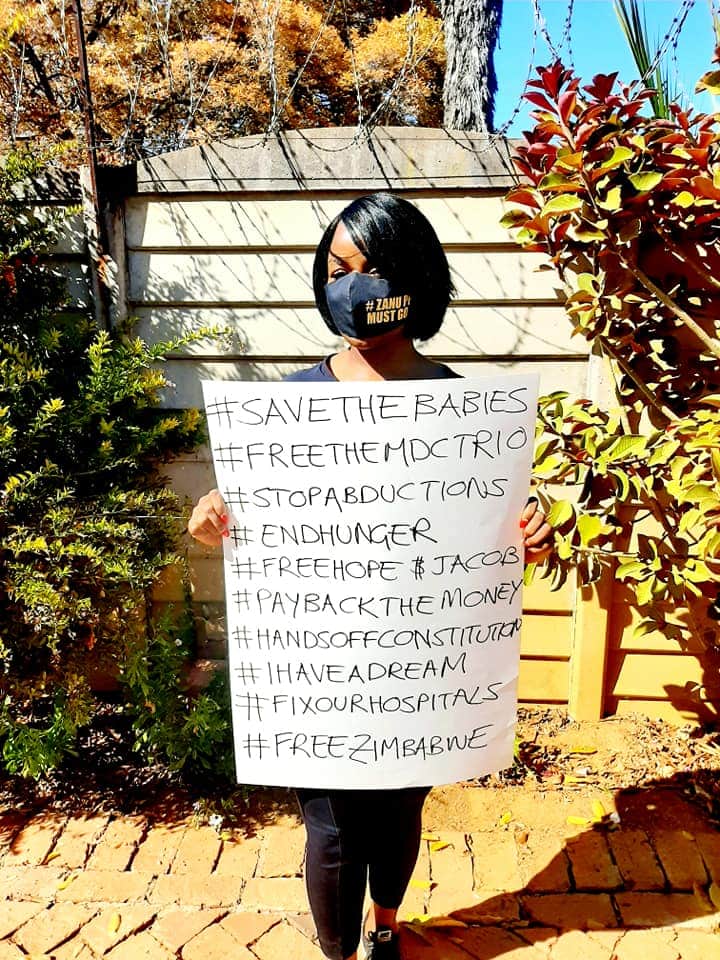 # ZANU P
MUST GO
#SAVETHEBABIES
#FREETHEMDCTRIO
#STOPABDUCTIONS
#ENDHUNGER
#FREEHOPE $ JACOB
#PAYBACKTHEMONEY
#HANDSOFFCONSTITUTION
#IHAVEADREAM
#FIXOURHOSPITALS
#FREEZIMBABWE